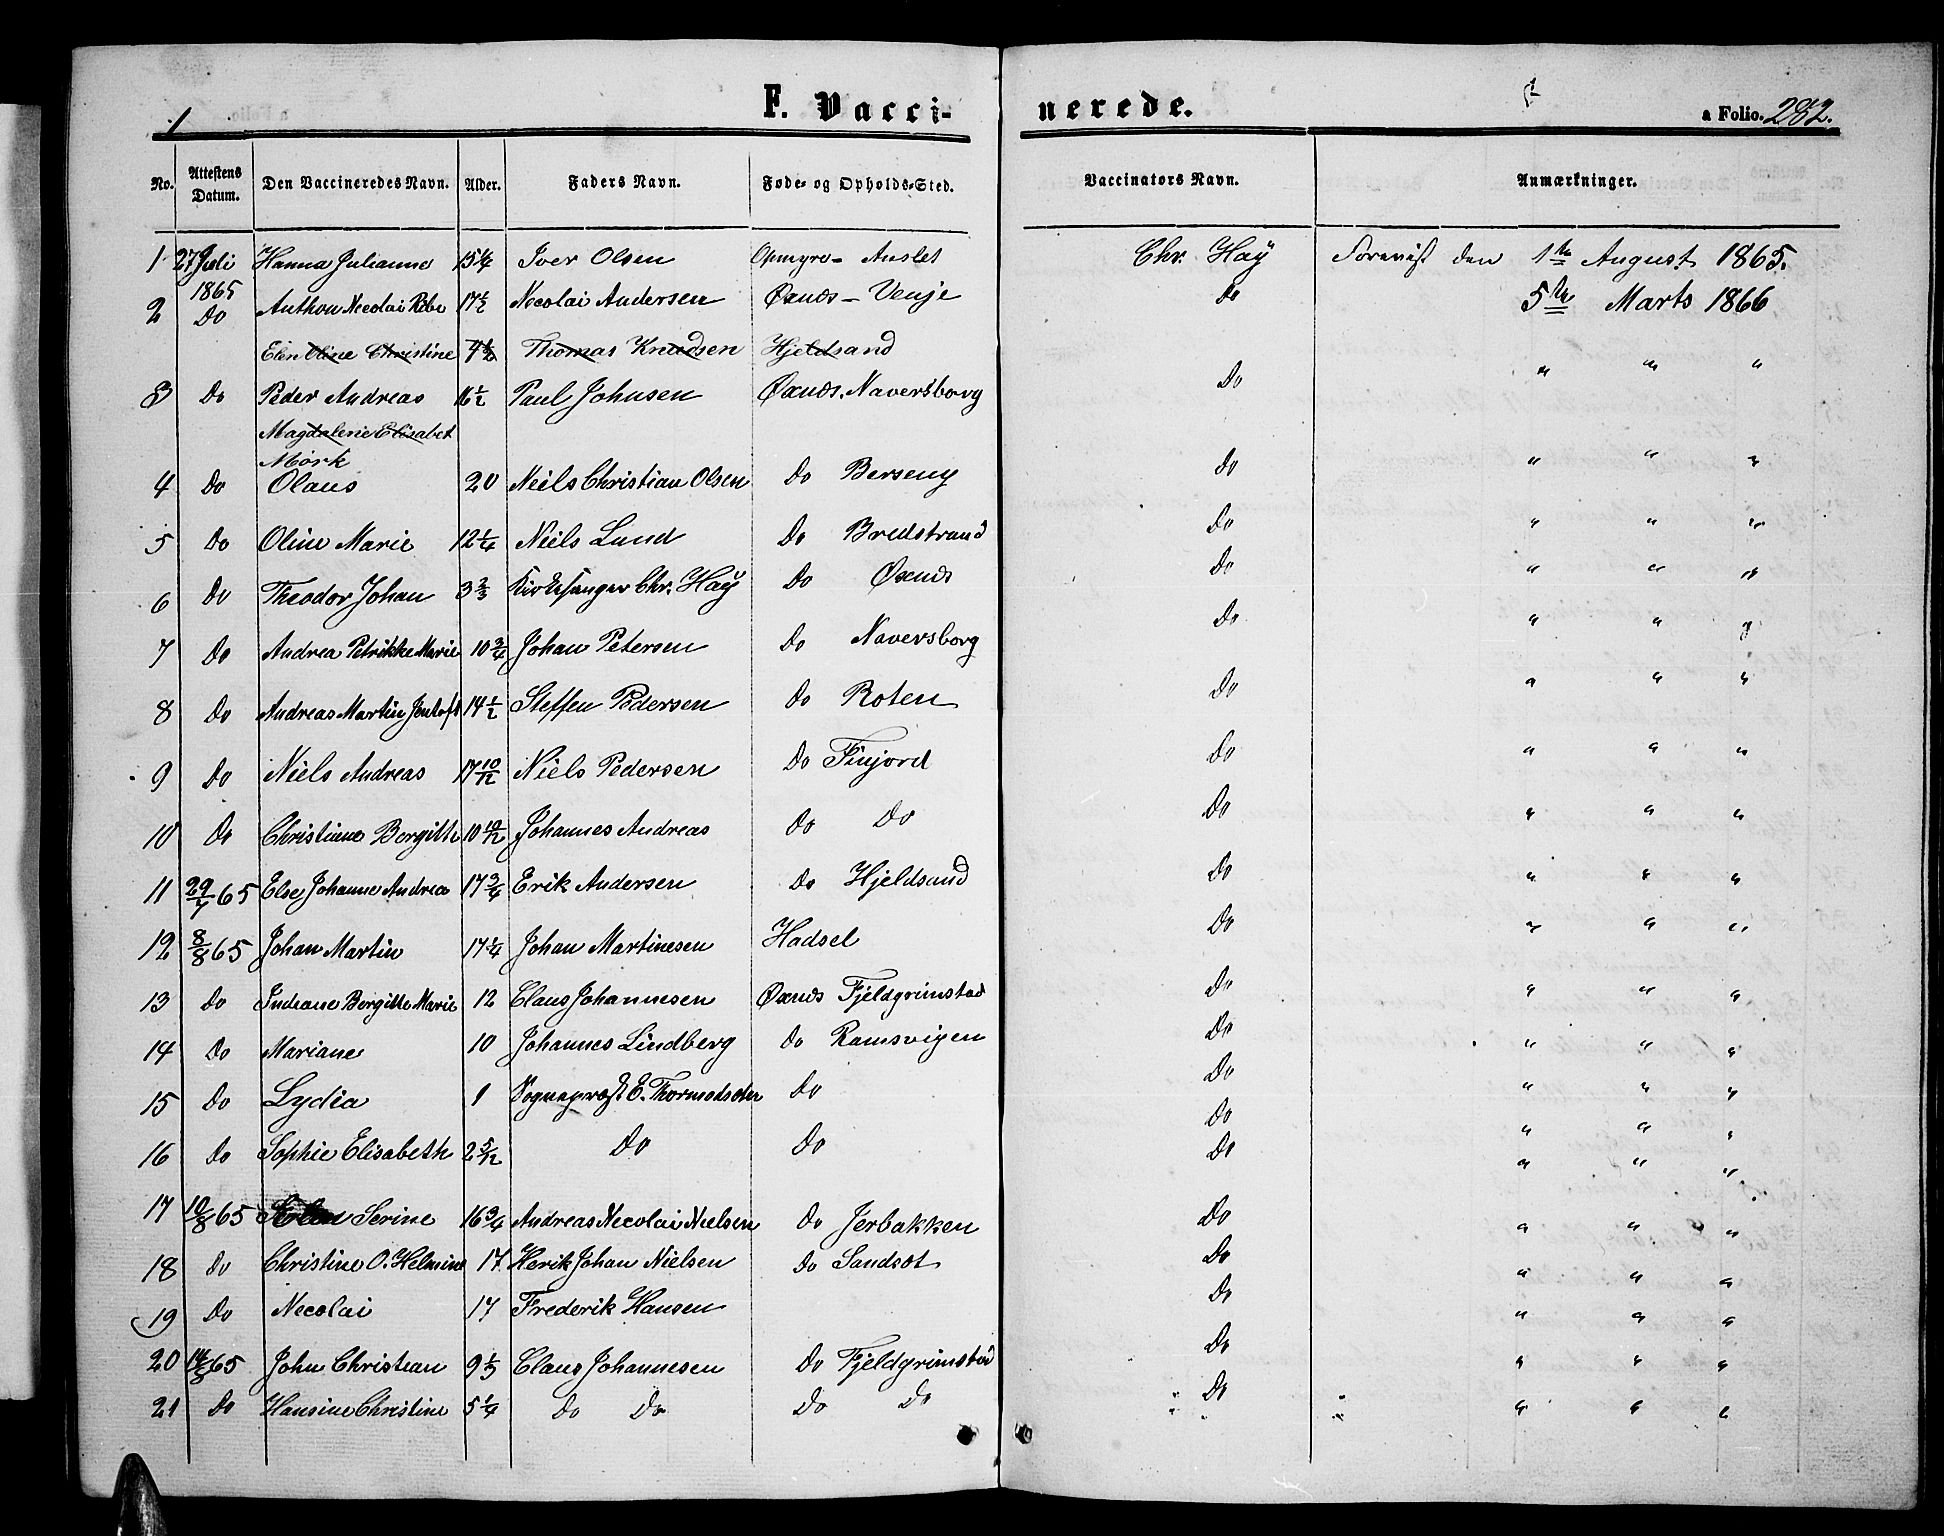 1
F. Vacci-
nerede.
a Folio. 282.
No. Attestens Datum. Den Vaccineredes Navn. Alder. Faders Navn. Føde- og Opholds-Sted. Vaccinators Navn. Anmærkninger.
1 27 Juli 1865 Hanna Julianne 15 1/4 Iver Olsen Opmyre- Anslet Chr. Haÿ Forevist den 1te August 1865.
2 Do Anthon Necolai Ribe 17 1/2 Necolai Andersen Øxnds- Venje Do 5te Marts 1866
Elen Oline Christine 4 1/2 Thomas Knudsen Hjeldsand
3 Do Peder Andreas 16 1/2 Paul Johnsen Øxnds. Naversborg Do " " "
Magdalene Elisabet
Mørk
4 Do Olaus 20 Neils Christian Olsen Do Berseng Do " " "
5 Do Oline Marie 12 1/4 Niels Lund Do Bredstrand Do " " "
6 Do Theodor Johan 3 2/3 Kirkesanger Chr. Haÿ Do Øxnds Do " " "
7 Do Andrea Petrikke Marie 10 3/4 Johan Petersen Do Naversborg Do " " "
8 Do Andreas Martin Jentoft 14 1/2 Steffen Pedersen Do Roten Do " " "
9 Do Niels Andreas 17 10/12 Niels Pedersen Do Finjord Do " " "
10 Do Christiane Bergitte 10 10/12 Johannes Andreas Do Do Do " " "
11 29/7 65 Else Johanne Andrea 17 3/4 Erik Andersen Do Hjeldsand Do " " "
12 8/8 65 Johan Martin 17 1/4 Johan Martinesen Hadsel Do " " "
13 Do Indiane Bergitte Marie 12 Claus Johannesen Øxnds Fjeldgrimstad Do " " "
14 Do Mariane 10 Johannes Lindberg Do Ramsvigen Do " " "
15 Do Lydia 1 Sognepræst E. Thormodsæter Do Do " " "
16 Do Sophie Elisabeth 2 5/12 Do Do Do " " "
17 10/8 65 Serine 16 3/4 Andreas Necolai Nielsen Do Jerbakken Do " " "
18 Do Christine O. Helmine 17 Herik Johan Nielsen Do Sandsøt Do " " "
19 Do Necolai 17 Frederik Hansen Do " " "
20 14/8 65 John Christian 9 1/3 Claus Johannesen Do Fjeldgrimstad Do " " "
21 Do Hansine Christine 5 1/4 Do Do Do Do Do " " "